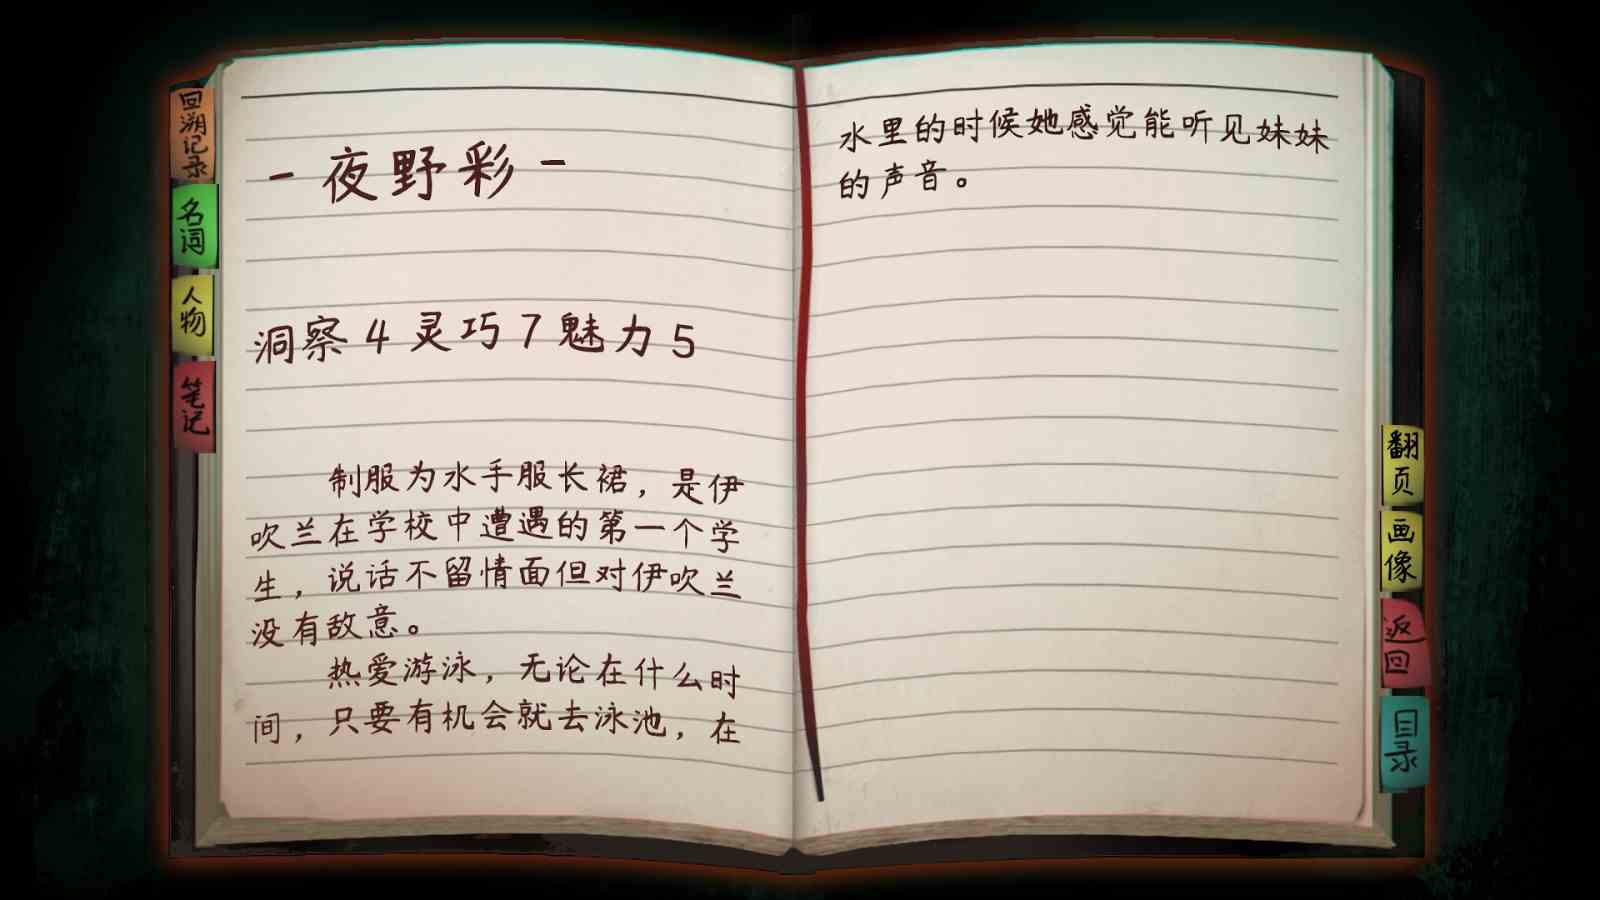 回溯记录
名词
人物
笔记
-夜野彩-
洞察4灵巧7魅力5
制服为水手服长裙，是伊
吹兰在学校中遭遇的第一个学
生，说话不留情面但对伊吹兰
没有敌意。
热爱游泳，无论在什么时
间，只要有机会就去泳池，在
水里的时候她感觉能听见妹妹
的声音。
翻页
画像
返回
目录